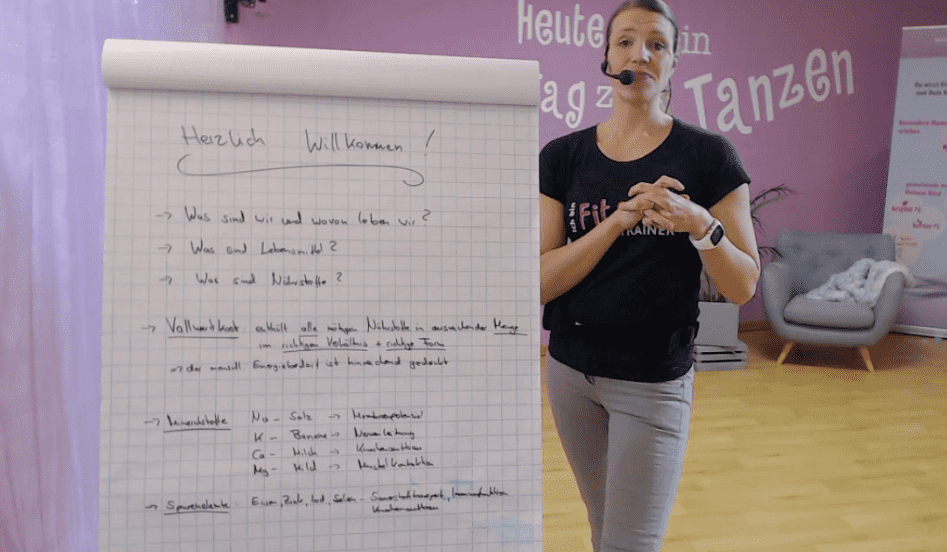 Herzlich Willkommen!
→ Was sind wir und wovon leben wir?
→ Was sind Lebensmittel?
→ Was sind Nährstoffe?
→ Vollwertkost: enthält alle nötigen Nährstoffe in ausreichender Menge
im richtigen Verhältnis + richtige Form
der menschl. Energiebedarf ist hinreichend gedeckt
→ Mineralstoffe Na - Salz → Membranpotenzial
K - Banane → Nervenleitung
Ca - Milch →
Mg - →
→ Eisen, Zink, Iod, Selen - Sauerstofftransport, Immunfunktion
Heute in
Tag z Tanzen
ich bin
Fit
TRAINER